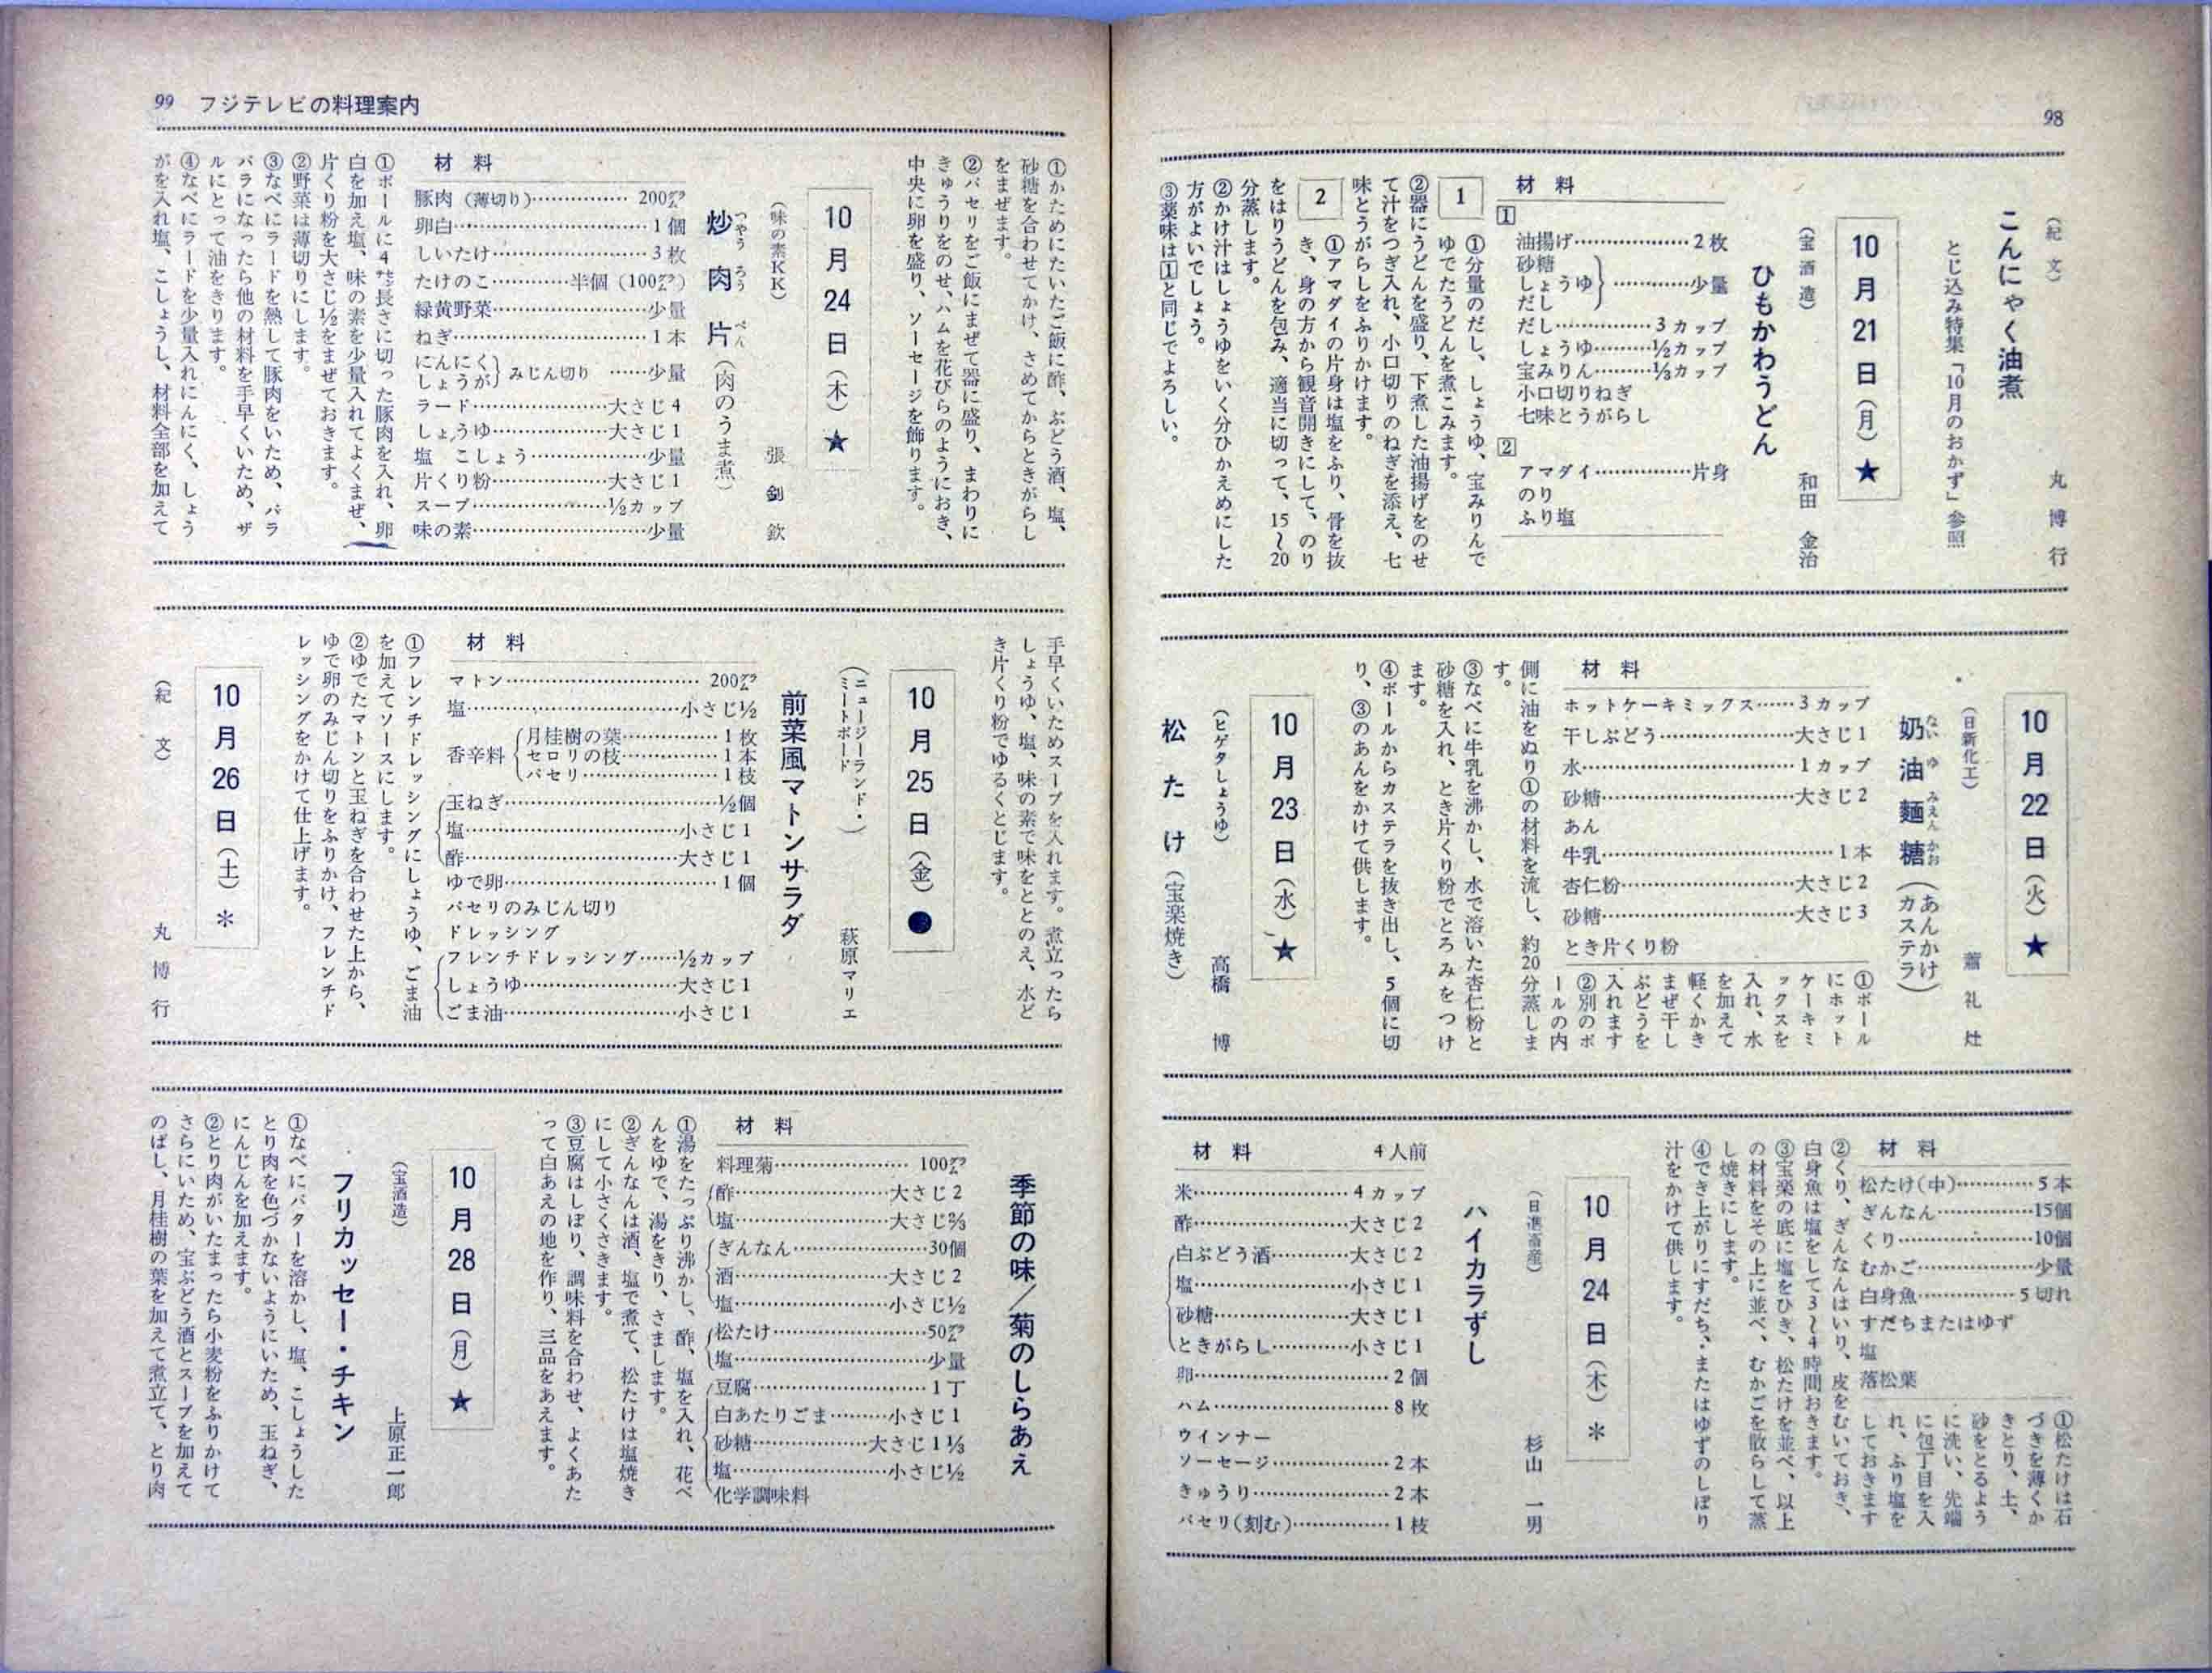 98
(紀文)
丸博行
こんにゃく油煮
とじ込み特集「10月のおかず」参照
10月21日(月)★
(宝酒造)
和田 金治
ひもかわうどん
材料
1
油揚げ……2枚
砂糖
しょうゆ
だし
……少量
だし……3カップ
しょうゆ……½カップ
宝みりん……⅓カップ
小口切りねぎ
七味とうがらし
2
アマダイ……片身
のり
ふり塩
1
①分量のだし、しょうゆ、宝みりんで
ゆでたうどんを煮こみます。
②器にうどんを盛り、下煮した油揚げをのせ
て汁をつぎ入れ、小口切りのねぎを添え、七
味とうがらしをふりかけます。
2
①アマダイの片身は塩をふり、骨を抜
き、身の方から観音開きにして、のり
をはりうどんを包み、適当に切って、15〜20
分蒸します。
②かけ汁はしょうゆをいく分ひかえめにした
方がよいでしょう。
③薬味は1と同じでよろしい。
10月22日(火)★
(日新化工)
蕭礼灶
奶油麵糖(あんかけカステラ)
ない ゆ みえん かお
材料
ホットケーキミックス……3カップ
干しぶどう……大さじ1
水……1カップ
砂糖……大さじ2
あん
牛乳……1本
杏仁粉……大さじ2
砂糖……大さじ3
とき片くり粉
①ボール
にホット
ケーキミ
ックスを
入れ、水
を加えて
軽くかき
まぜ干し
ぶどうを
入れます
②別のボ
ールの内
側に油をぬり①の材料を流し、約20分蒸しま
す。
③なべに牛乳を沸かし、水で溶いた杏仁粉と
砂糖を入れ、とき片くり粉でとろみをつけ
ます。
④ボールからカステラを抜き出し、5個に切
り、③のあんをかけて供します。
10月23日(水)★
(ヒゲタしょうゆ)
高橋 博
松たけ(宝楽焼き)
材料
松たけ(中)……5本
ぎんなん……15個
くり……10個
むかご……少量
白身魚……5切れ
すだちまたはゆず
塩
落松葉
①松たけは石
づきを薄くか
きとり、土、
砂をとるよう
に洗い、先端
に包丁目を入
れ、ふり塩を
しておきます
②くり、ぎんなんはいり、皮をむいておき、
白身魚は塩をして3〜4時間おきます。
③宝楽の底に塩をひき、松たけを並べ、以上
の材料をその上に並べ、むかごを散らして蒸
し焼きにします。
④でき上がりにすだち、またはゆずのしぼり
汁をかけて供します。
10月24日(木)＊
(日進畜産)
杉山 一男
ハイカラずし
材料 4人前
米……4カップ
酢……大さじ2
白ぶどう酒……大さじ2
塩……小さじ1
砂糖……大さじ1
ときがらし……小さじ1
卵……2個
ハム……8枚
ウインナー
ソーセージ……2本
きゅうり……2本
パセリ(刻む)……1枝
99 フジテレビの料理案内
①かためにたいたご飯に酢、ぶどう酒、塩、
砂糖を合わせてかけ、さめてからときがらし
をまぜます。
②パセリをご飯にまぜて器に盛り、まわりに
きゅうりをのせ、ハムを花びらのようにおき、
中央に卵を盛り、ソーセージを飾ります。
10月24日(木)★
(味の素KK)
張釗欽
炒肉片(肉のうま煮)
つやう ろう ぺん
材料
豚肉(薄切り)……200㌘
卵白……1個
しいたけ……3枚
たけのこ……半個(100㌘)
緑黄野菜……少量
ねぎ……1本
にんにく
しょうが
みじん切り……少量
ラード……大さじ4
しょうゆ……大さじ1
塩 こしょう……少量
片くり粉……大さじ1
スープ……½カップ
味の素……少量
①ボールに4㌢長さに切った豚肉を入れ、卵
白を加え塩、味の素を少量入れてよくまぜ、
片くり粉を大さじ½をまぜておきます。
②野菜は薄切りにします。
③なべにラードを熱して豚肉をいため、バラ
バラになったら他の材料を手早くいため、ザ
ルにとって油をきります。
④なべにラードを少量入れにんにく、しょう
がを入れ塩、こしょうし、材料全部を加えて
手早くいためスープを入れます。煮立ったら
しょうゆ、塩、味の素で味をととのえ、水ど
き片くり粉でゆるくとじます。
10月25日(金)●
(ニュージーランド・ミートボード)
萩原マリエ
前菜風マトンサラダ
材料
マトン……200㌘
塩……小さじ½
香辛料
月桂樹の葉……1枚
セロリの枝……1本
パセリ……1枝
玉ねぎ……½個
塩……小さじ1
酢……大さじ1
ゆで卵……1個
パセリのみじん切り
ドレッシング
フレンチドレッシング……½カップ
しょうゆ……大さじ1
ごま油……小さじ1
①フレンチドレッシングにしょうゆ、ごま油
を加えてソースにします。
②ゆでたマトンと玉ねぎを合わせた上から、
ゆで卵のみじん切りをふりかけ、フレンチド
レッシングをかけて仕上げます。
10月26日(土)＊
(紀文)
丸博行
季節の味／菊のしらあえ
材料
料理菊……100㌘
酢……大さじ2
塩……大さじ⅔
ぎんなん……30個
酒……大さじ2
塩……小さじ½
松たけ……50㌘
塩……少量
豆腐……1丁
白あたりごま……小さじ1
砂糖……大さじ1⅓
塩……小さじ½
化学調味料
①湯をたっぷり沸かし、酢、塩を入れ、花べ
んをゆで、湯をきり、さまします。
②ぎんなんは酒、塩で煮て、松たけは塩焼き
にして小さくさきます。
③豆腐はしぼり、調味料を合わせ、よくあた
って白あえの地を作り、三品をあえます。
10月28日(月)★
(宝酒造)
上原正一郎
フリカッセー・チキン
①なべにバターを溶かし、塩、こしょうした
とり肉を色づかないようにいため、玉ねぎ、
にんじんを加えます。
②とり肉がいたまったら小麦粉をふりかけて
さらにいため、宝ぶどう酒とスープを加えて
のばし、月桂樹の葉を加えて煮立て、とり肉